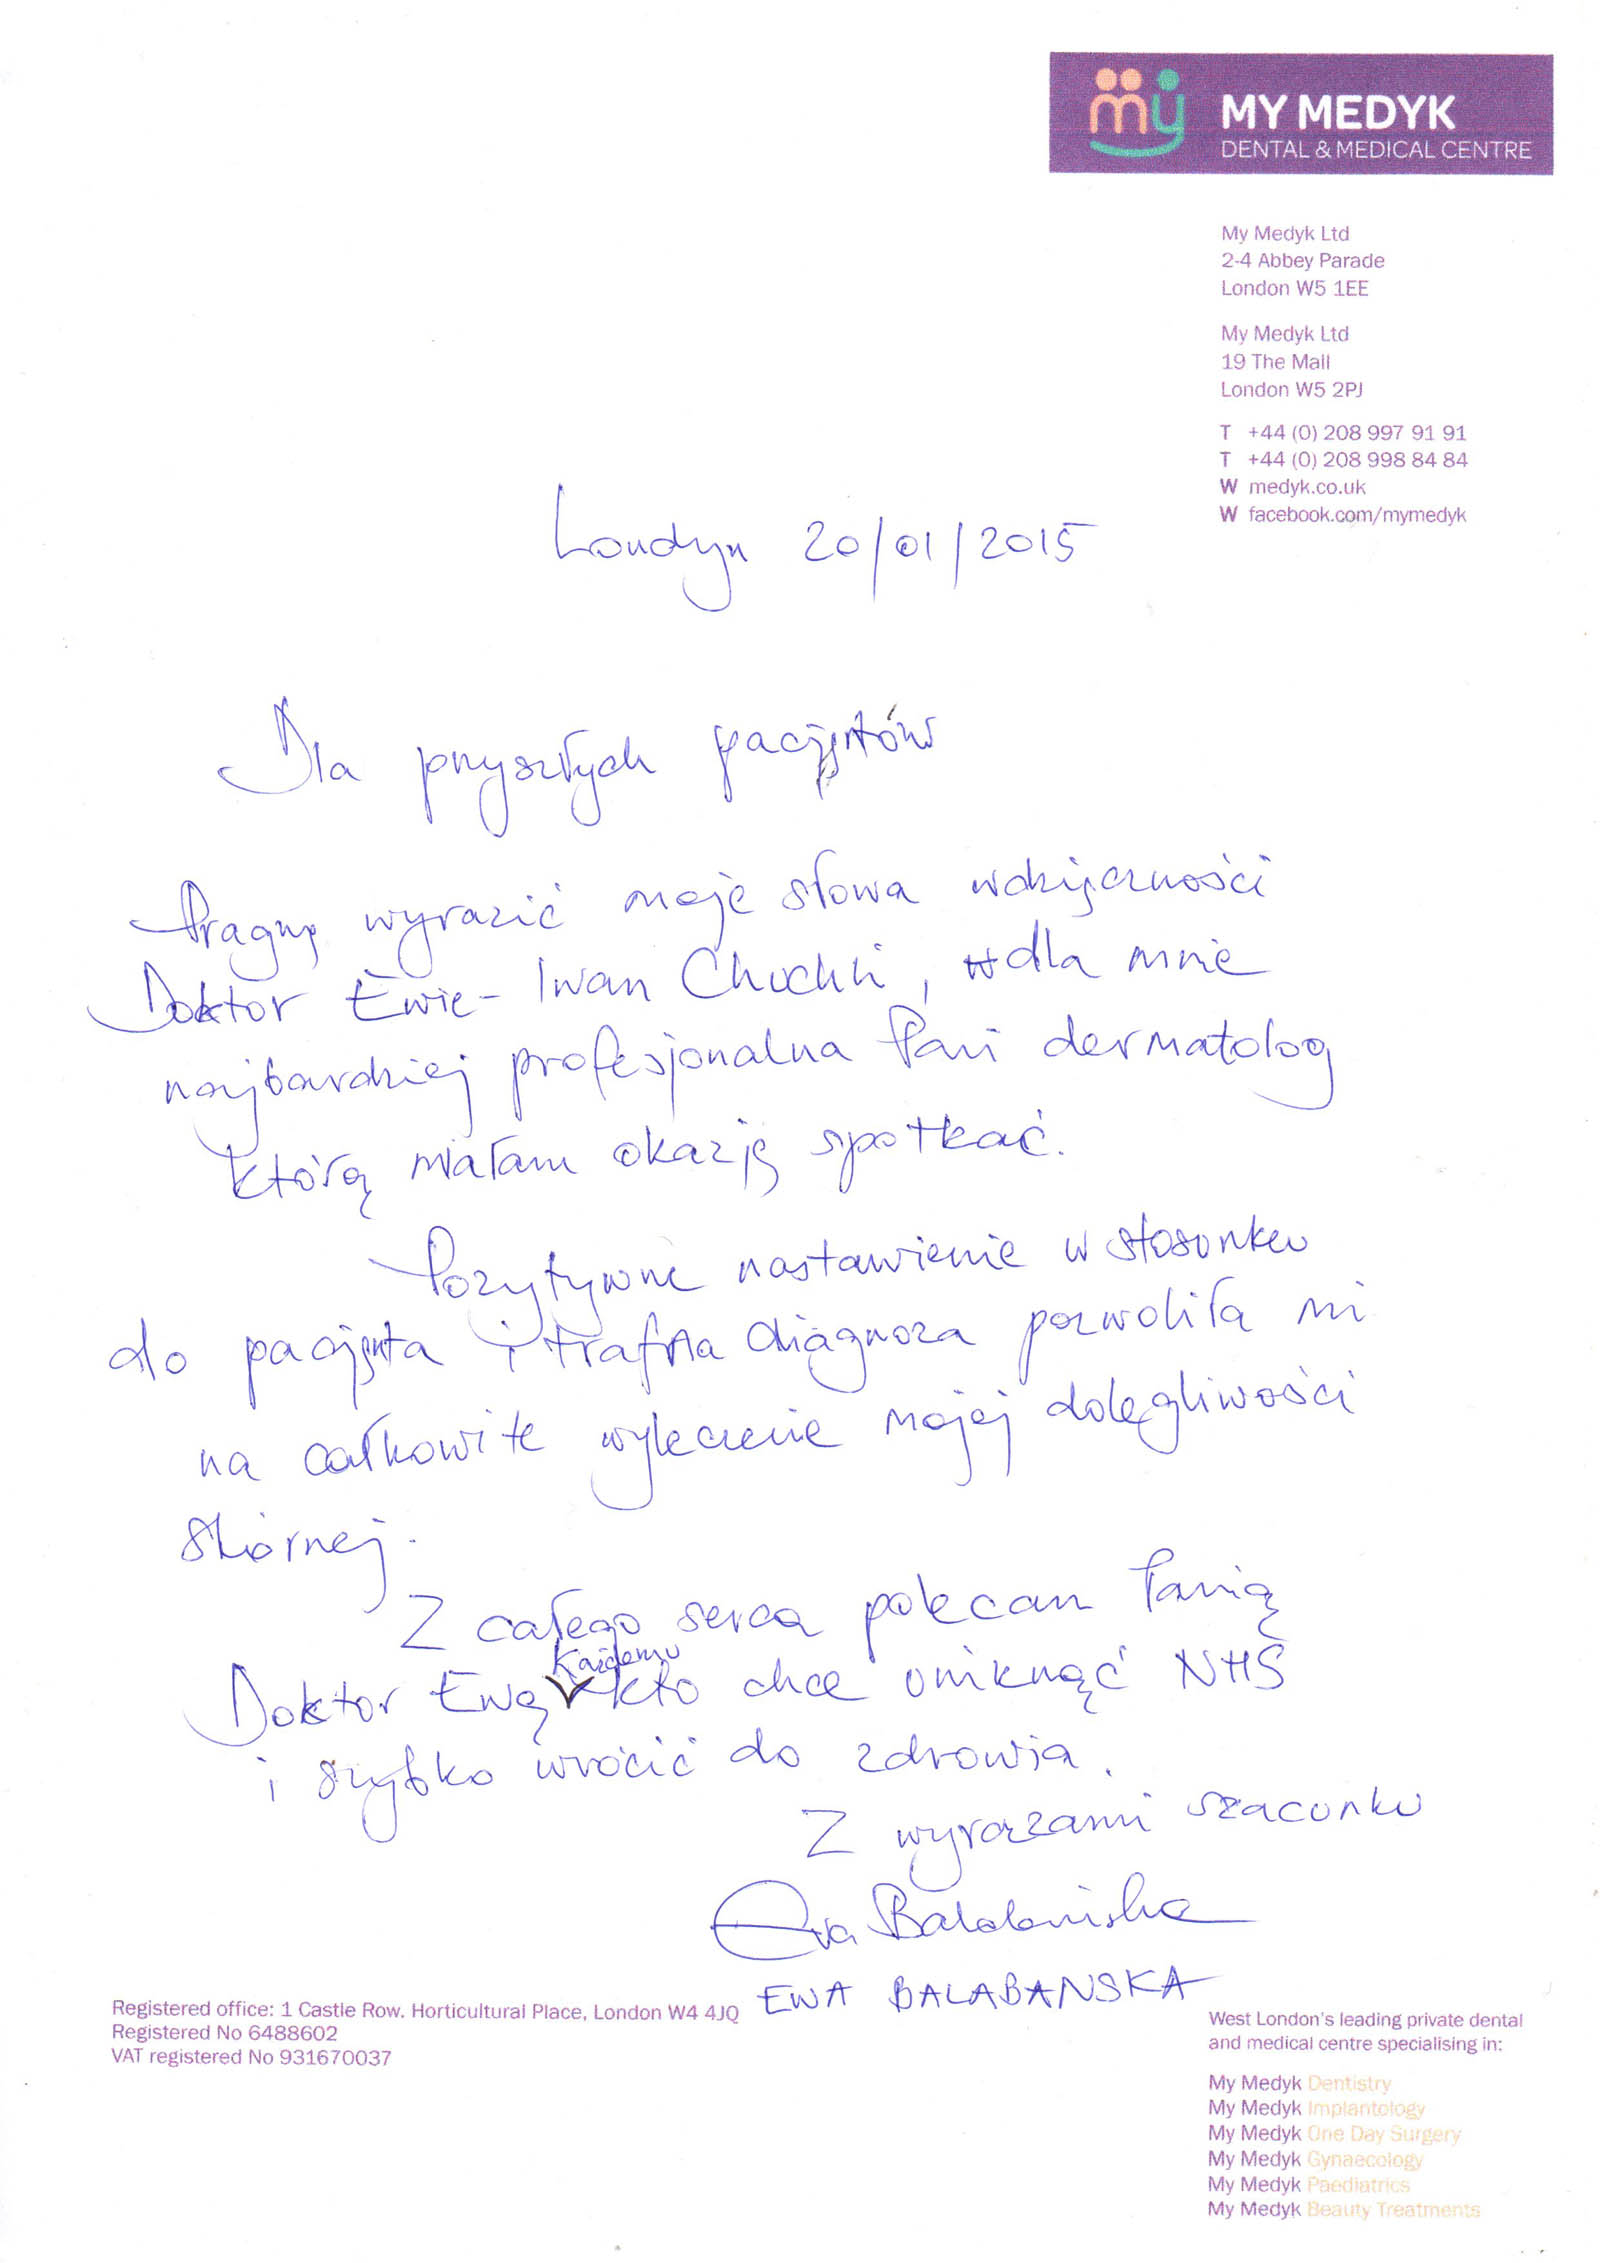 my MY MEDYK
DENTAL & MEDICAL CENTRE
My Medyk Ltd
2-4 Abbey Parade
London W5 1EE
My Medyk Ltd
19 The Mall
London W5 2PJ
T +44 (0) 208 997 91 91
T +44 (0) 208 998 84 84
W medyk.co.uk
W facebook.com/mymedyk
Londyn 20/01/2015
Dla przyszłych pacjętów
Pragnę wyrazić moje słowa wdzięczności
Doktor Ewie - Iwan Chuchli, dla mnie
najbardziej profesjonalna Pani dermatolog
którą miałam okazję spotkać.
Pozytywne nastawienie w stosunku
do pacjęta i trafna diagnoza pozwoliła mi
na całkowite wyleczenie mojej dolęgliwości
skórnej.
Z całego serca polecam Panią
Doktor Ewę każdemu kto chce uniknąć NHS
i szybko wrócić do zdrowia.
Z wyrazami szacunku
Ewa Balabanska
EWA BALABANSKA
Registered office: 1 Castle Row. Horticultural Place, London W4 4JQ
Registered No 6488602
VAT registered No 931670037
West London's leading private dental
and medical centre specialising in:
My Medyk Dentistry
My Medyk Implantology
My Medyk One Day Surgery
My Medyk Gynaecology
My Medyk Paediatrics
My Medyk Beauty Treatments